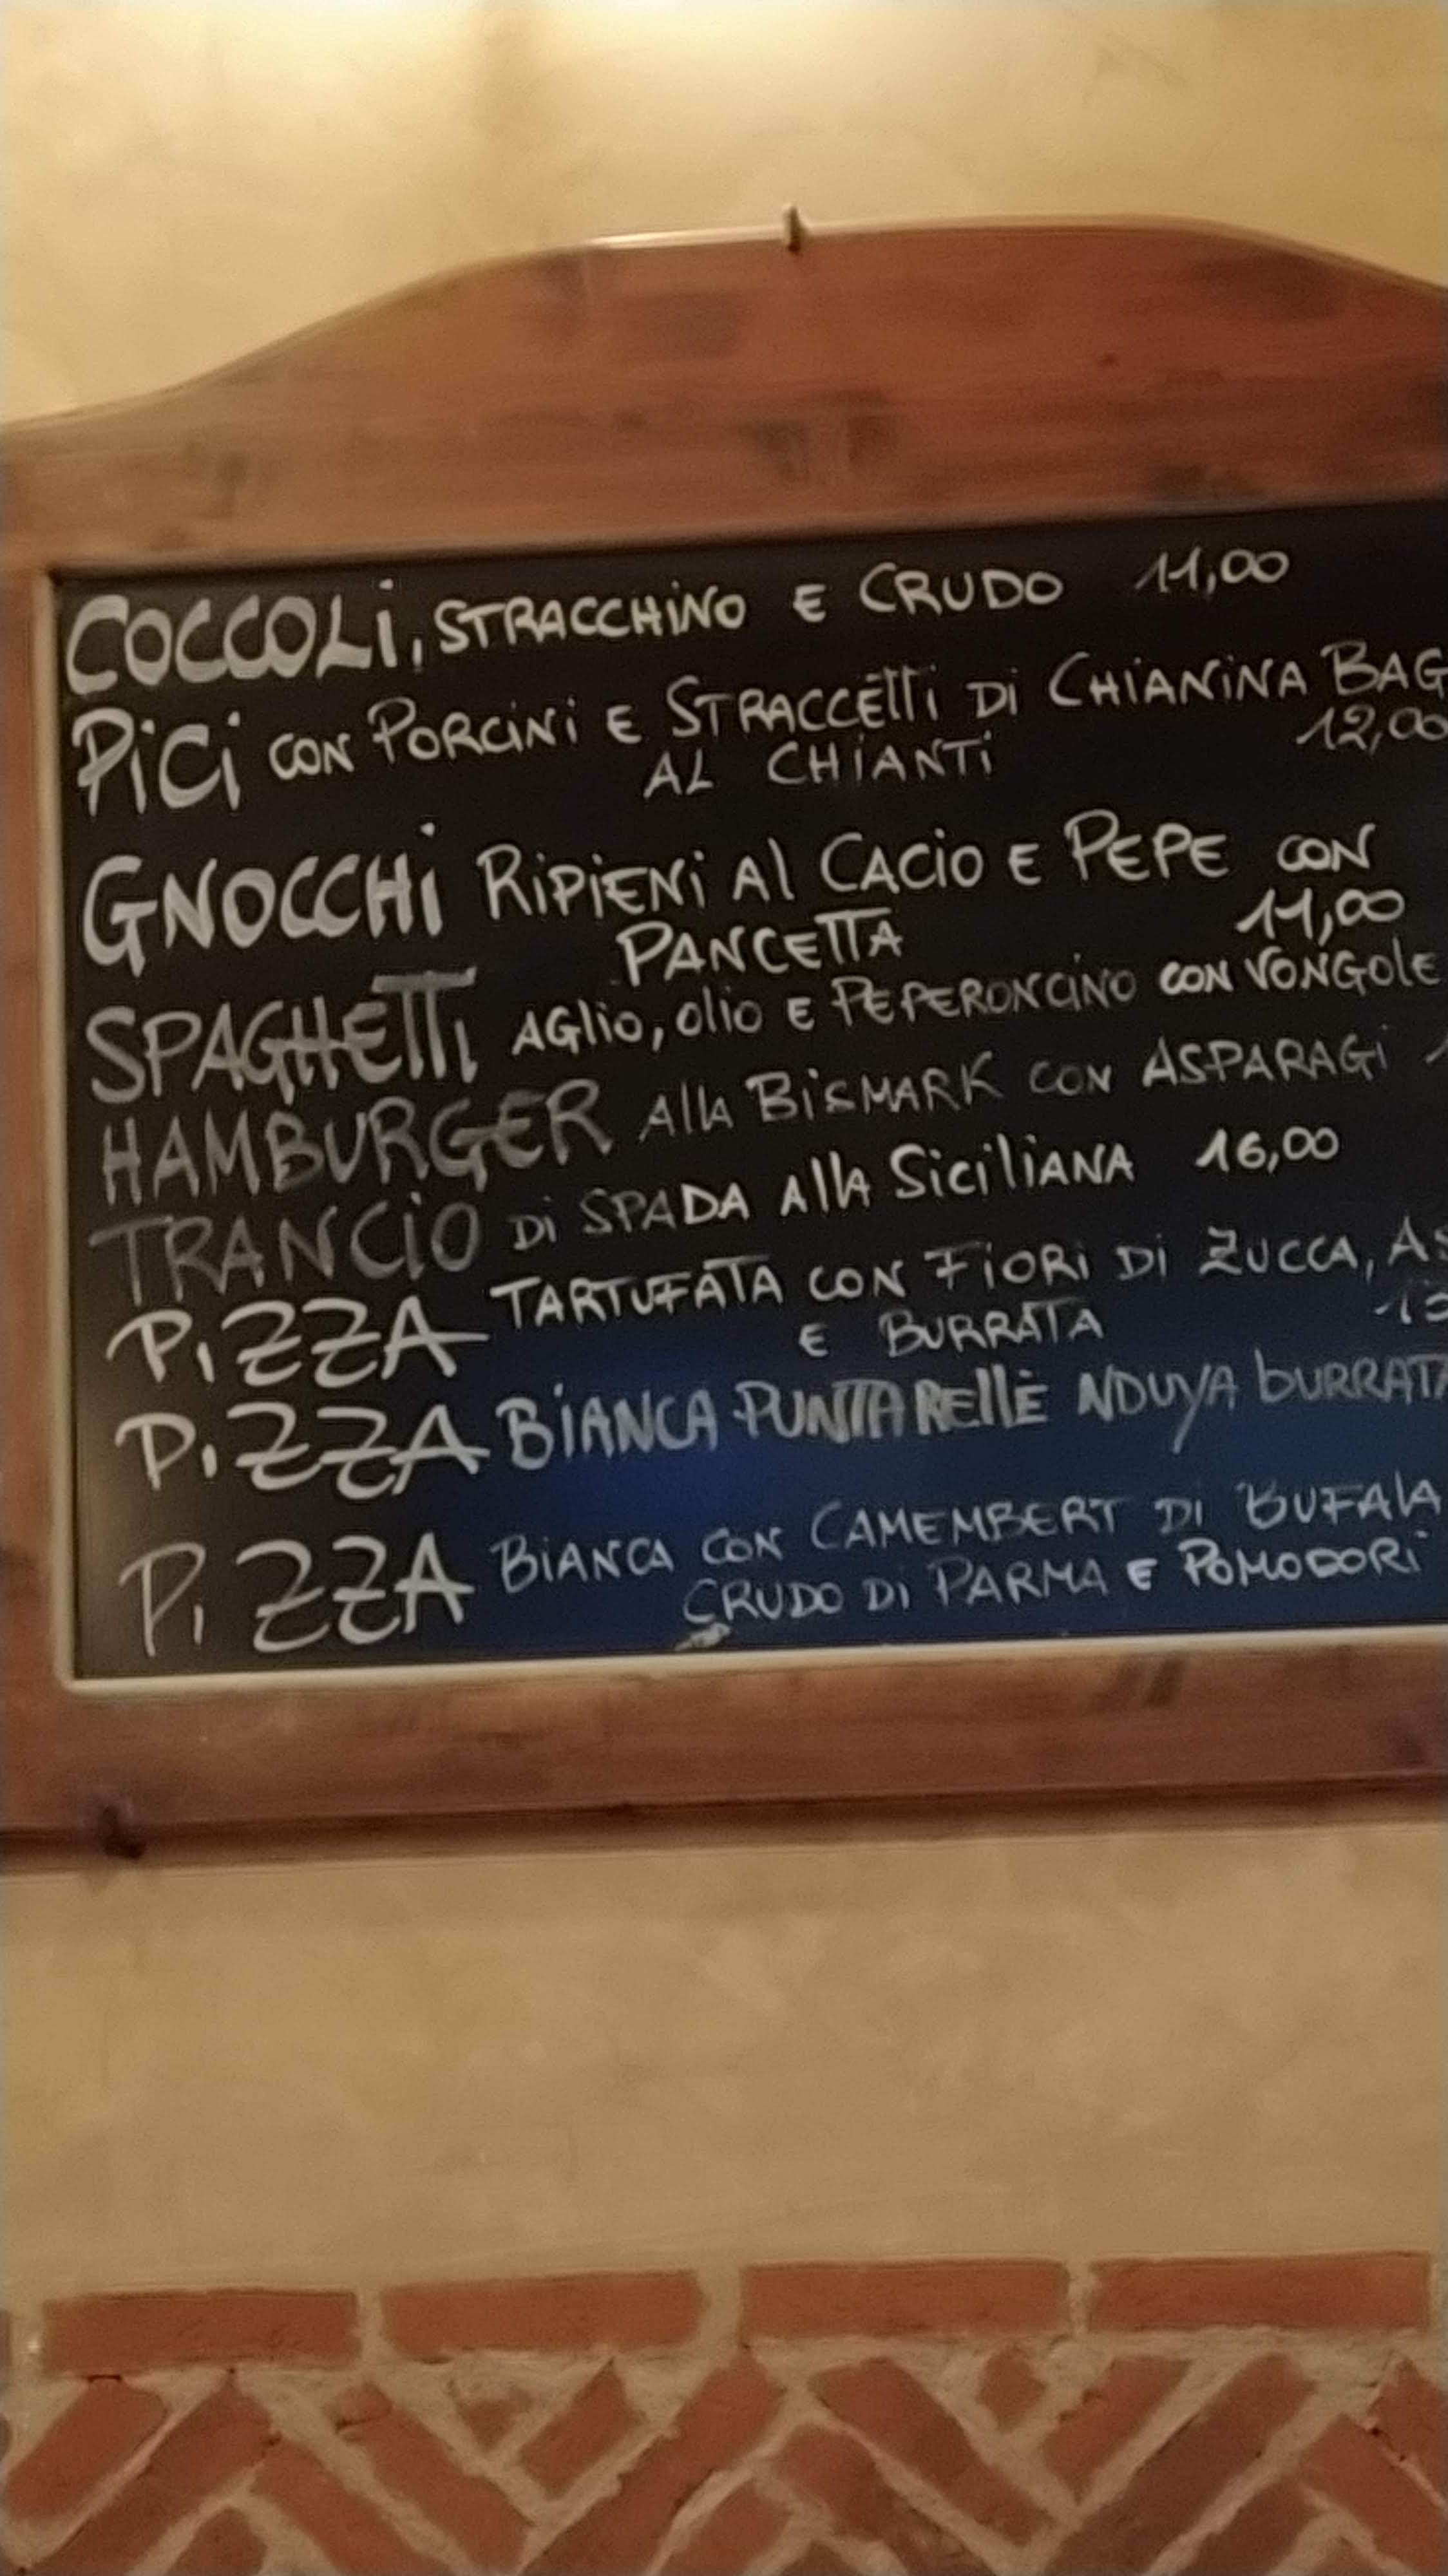 COCCOLi, STRACCHiNO E CRUDO 11,00
PiCi CON PORCiNi E STRACCETTi Di CHiANiNA BAG
AL CHiANTi 12,00
GNOCCHi RiPiENi Al CACiO E PEPE CON
PANCETTA 11,00
SPAGHETTi AGliO, OliO E PEPERONCiNO CON VONGOlE
HAMBURGER AllA BiSMARK CON ASPARAGi 1
TRANCiO Di SPADA AllA SiCiliANA 16,00
PiZZA TARTUFATA CON FiORi Di ZUCCA, AS
E BURRATA
PiZZA BiANCA PUNTARELLE NDUYA bURRATA
PiZZA BiANCA CON CAMEMBERT Di BUFAlA
CRUDO Di PARMA E POMODORi